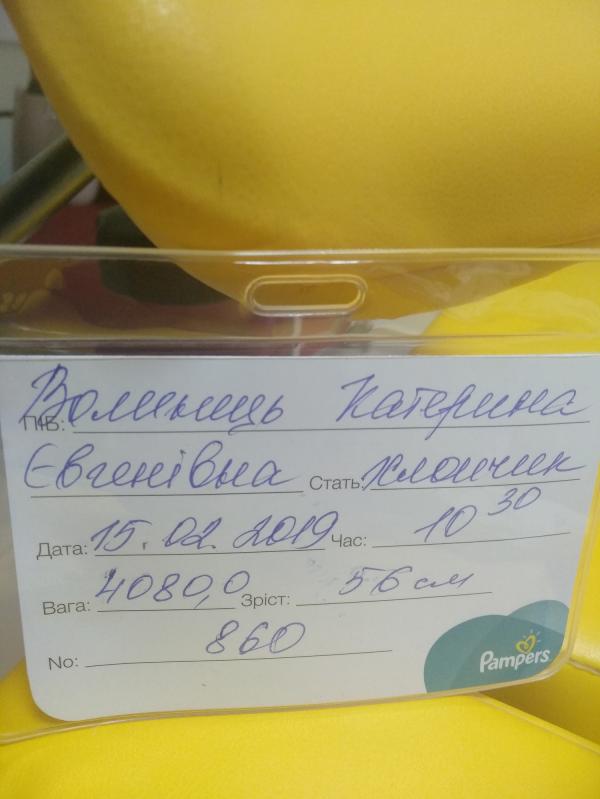 ПІБ: Волинець Катерина
Євгенівна Стать: хлопчик
Дата: 15.02.2019 Час: 10 30
Вага: 4080,0 Зріст: 56 см
No: 860
Pampers